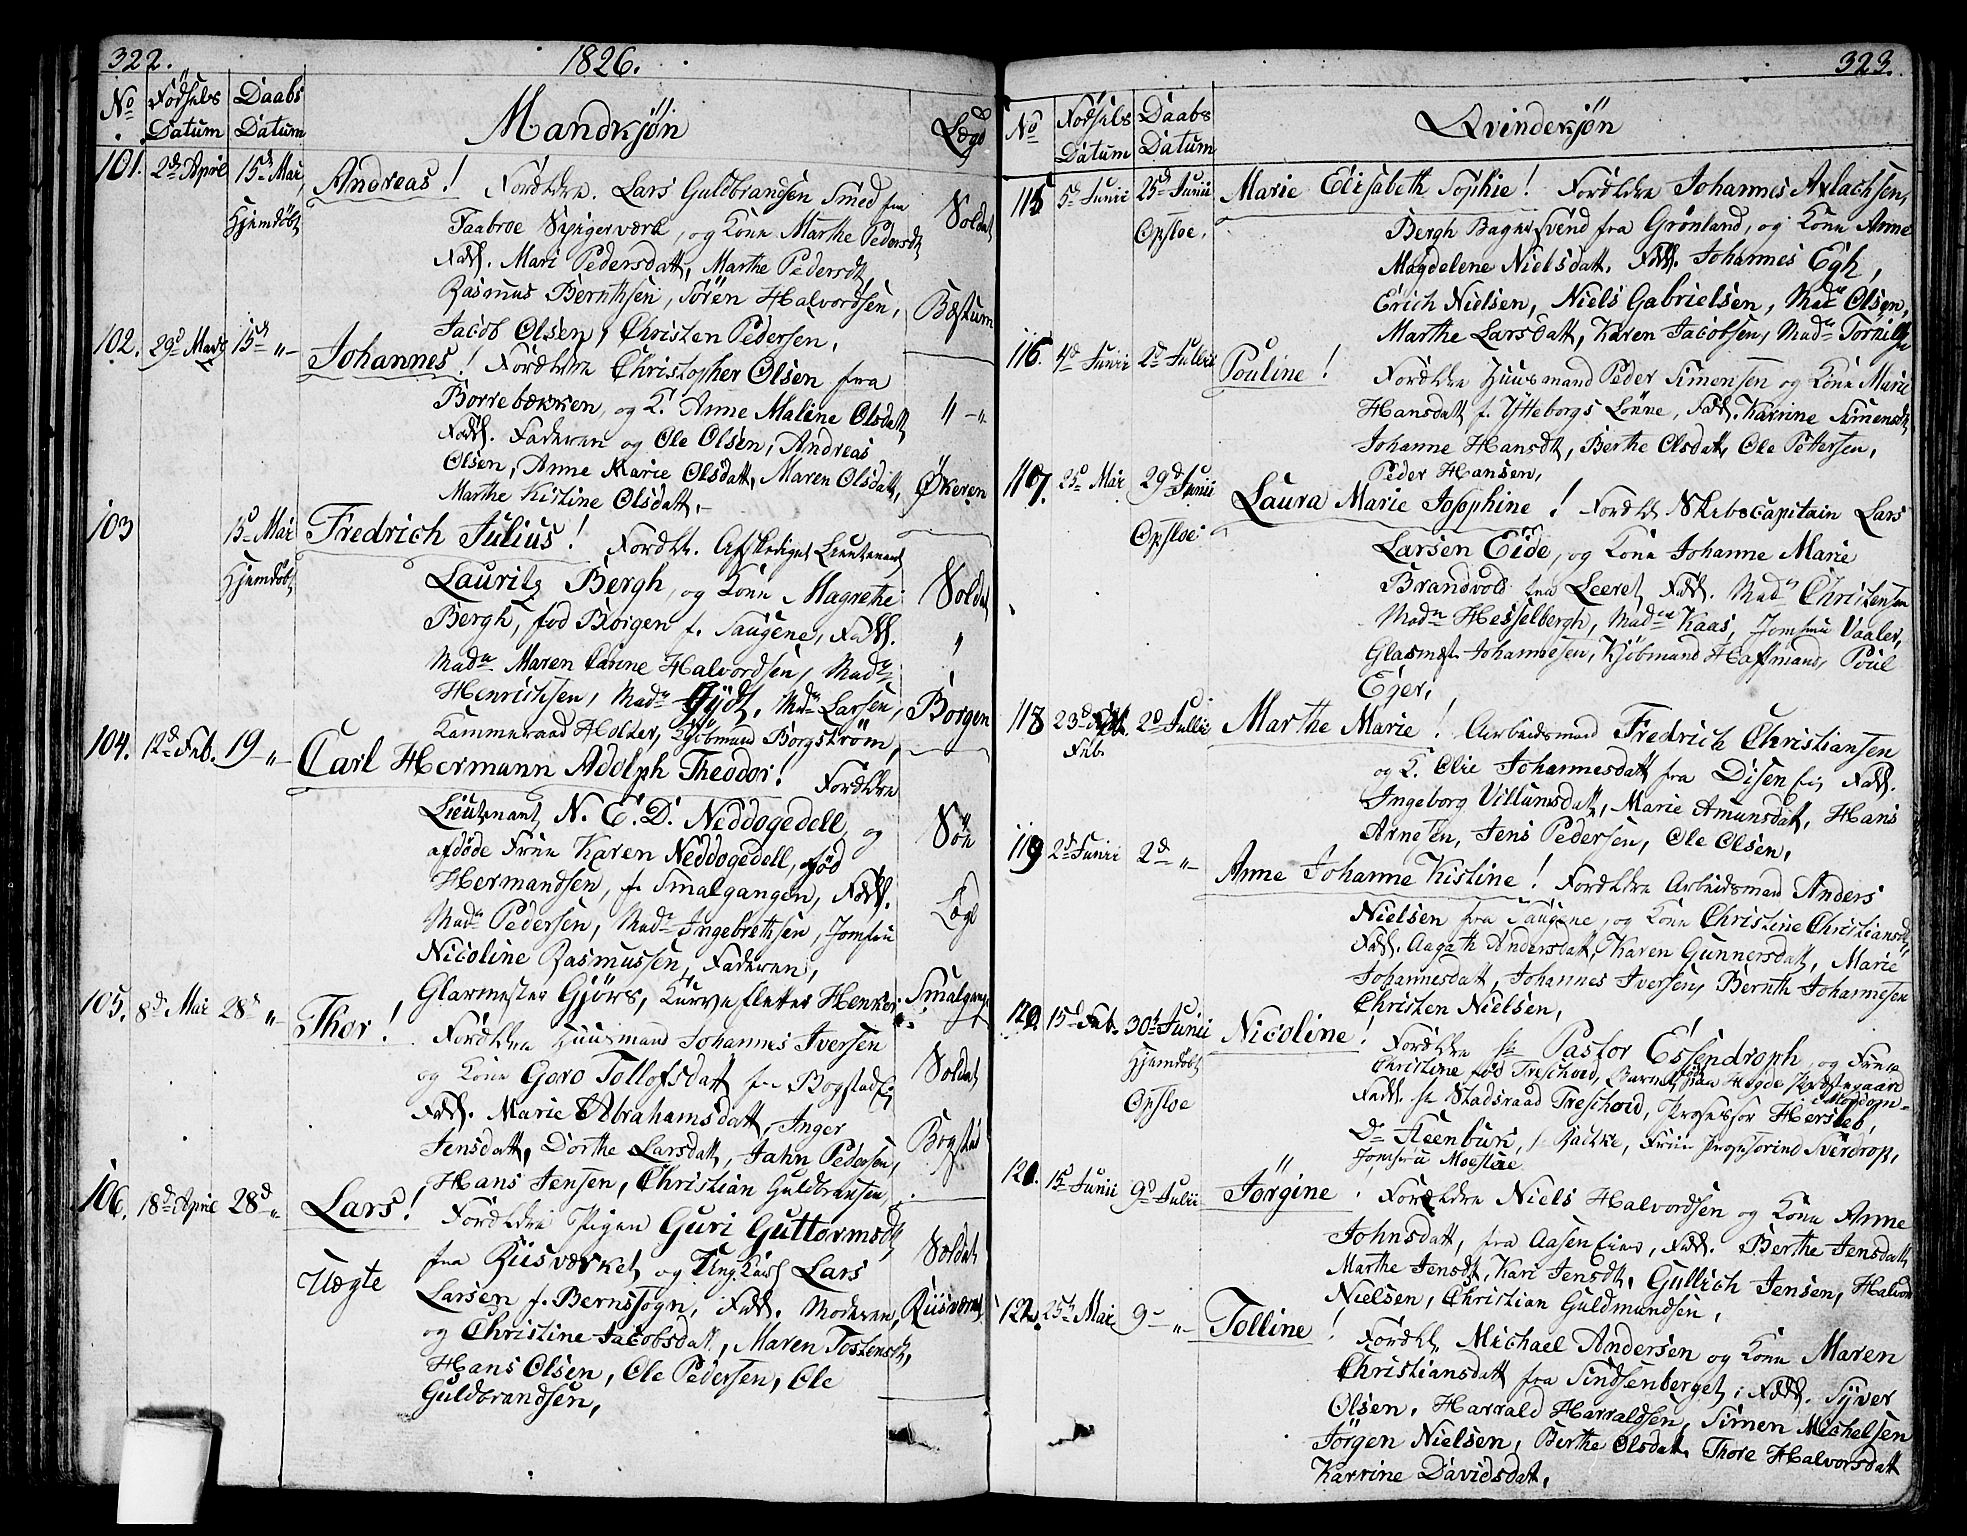 322.
1826.
No
Fødsels Datum
Daabs Datum
Mandkjøn
Lægd
101. 2de April 15de Mai, Hjemdøbt
Andreas! Forældre. Lars Guldbrandsen Smed fra
Faabroe Spigerværk, og Kone Marthe Pedersdt
Fadd. Mari Pedersdatt, Marthe Pedersdt,
Rasmus Bernthsen, Søren Halvordsen,
Jacob Olsen, Christen Pedersen,
Soldat
Bæstum
102. 29d Marts 15de "-
Johannes! Forældre Christopher Olsen fra
Borrebækken, og K. Anne Malene Olsdatt,
Fadd. Faderen og Ole Olsen, Andreas
Olsen, Anne Marie Olsdatt, Maren Olsdatt,
Marthe Kistine Olsdatt.-
"-"
Økeren
103 15d Mai Hjemdøbt
Fredrich Julius! Forældr. Afskediget Lieutenant
Lauritz Bergh, og Kone Magrethe
Bergh, fød Borgen f. Saugene, Fadd.
Madme Maren Carine Halvordsen, Madme
Henrichsen, Madme Gydt, Madme Larsen,
Kammeraad Holder, Kjøbmand Borgstrøm,
Soldat
"
Borgen
104. 12de Feb. 19-"-
Carl Hermann Adolph Theodor! Forældre
Lieutenant N. E. D. Neddogedell, og
afdøde Frue Karen Neddogedell, fød
Hermandsen, fr Smalgangen, Fadd.
Madme Pedersen, Madme Ingebrethsen, Jomfru
Nicoline Rasmussen, Faderen,
Glarmester Gjörs, Kurvefletter Henker.
Söe
Lægd
Smalgang
105. 8de Mai 28de "
Thor! Forældre Huusmand Johannes Iversen
og Kone Goro Tollofsdatt fra Bogstad
Fadd. Marie Abrahamsdatt, Inger
Jensdatt, Dorthe Larsdatt, Jahn Pedersen,
Hans Jensen, Christian Guldbransen,
Soldat
Bogstad
106. 18de April 28d-"
Lars! Forældre Pigen Guri Guttormsdt,
Uægte
fra Riisværket, og Ungkarl Lars
Larsen f. Berns Sogn, Fadd. Moderen,
og Christine Jacobsdatt, Maren Tostensdt,
Hans Olsen, Ole Pedersen, Ole
Guldbrandsen,
Soldat
Riisværket
323.
No
Fødsels Datum
Daabs Datum
Qvindekjøn
115 5de Junii 25de Junii Opsloe.
Marie Elisabeth Sophie! Forældre Johannes Axlachsen,
Bergh Bagersvend fra Grønland, og Kone Anne
Magdelene Nielsdatt. Fadd. Johannes Egh,
Erich Nielsen, Niels Gabrielsen, Madme Olsen,
Marthe Larsdatt, Karen Jacobsen, Madme
116. 4d Junii 2d Julii
Pouline! Forældre Huusmand Peder Simonsen og Kone Marie
Hansdatt f. Ytteborgs Løkke, Fadd. Karrine Simensdt,
Johanne Hansdt, Berthe Olsdatt, Ole Pettersen,
Peder Hansen,
117. 25de Mai 29d Junii Opsloe
Laura Marie Josephine! Forældr Skibscapitain Lars
Larsen Eide, og Kone Johanne Marie
Brandvold fra Leeret, Fadd. Madme Christensen
Madme Hesselberg, Madme Kaas, Jomfru Vaaler,
Glasmest. Johannesen, Kjøbmand Haffmans, Poul
Eger,
118 23d Feb. 2d Julii
Marthe Marie! Arbeidsmand Fredrich Christiansen
og K. Olie Johannesdatt fra Disen Eie, Fadd.
Ingeborg Villumsdatt, Marie Amunsdatt, Hans
Arnesen, Jens Pedersen, Ole Olsen,
119 2de Junii 2de "-
Anne Johanne Kistine! Forældre Arbeidsmand Anders
Nielsen fra Saugene, og Kone Christine Christiansdt,
Fadd. Aagath Andersdatt, Karen Gunnersdatt, Marie
Johannesdatt, Johannes Iversen, Bernth Johannesen
Christen Nielsen,
120. 15d Feb. 30te Junii Hjemdøbt Opsloe
Nicoline! Forældre Hr Pastor Essendroph, og Frue
Christine fød Treschovd, Barnet fød paa Høyde Præstegaard
Fadd. Hr Stadsraad Treschovd, Professor Hersleb,
Dr Steenbuk, Fr Bache, Frue Professorinde Sverdrop,
Jomfru Moestue
121. 15d Junii 9d Julii
Jörgine. Forældre Niels Halvordsen og Kone Anne
Johnsdatt, fra Aasen Eier, Fadd. Berthe Jensdatt,
Marthe Jensdt, Kari Jensdt, Gullich Jensen, Halvor
Nielsen, Christian Guldmundsen,
122. 25de Mai 9-"-
Tolline! Forældr Michael Andersen og Kone Maren
Christiansdatt fra Sindsenberget; Fadd. Syver
Olsen, Harrald Harraldsen, Simen Michelsen
Jörgen Nielsen, Berthe Olsdatt, Thore Halvorsdatt
Karrine Davidsdat,